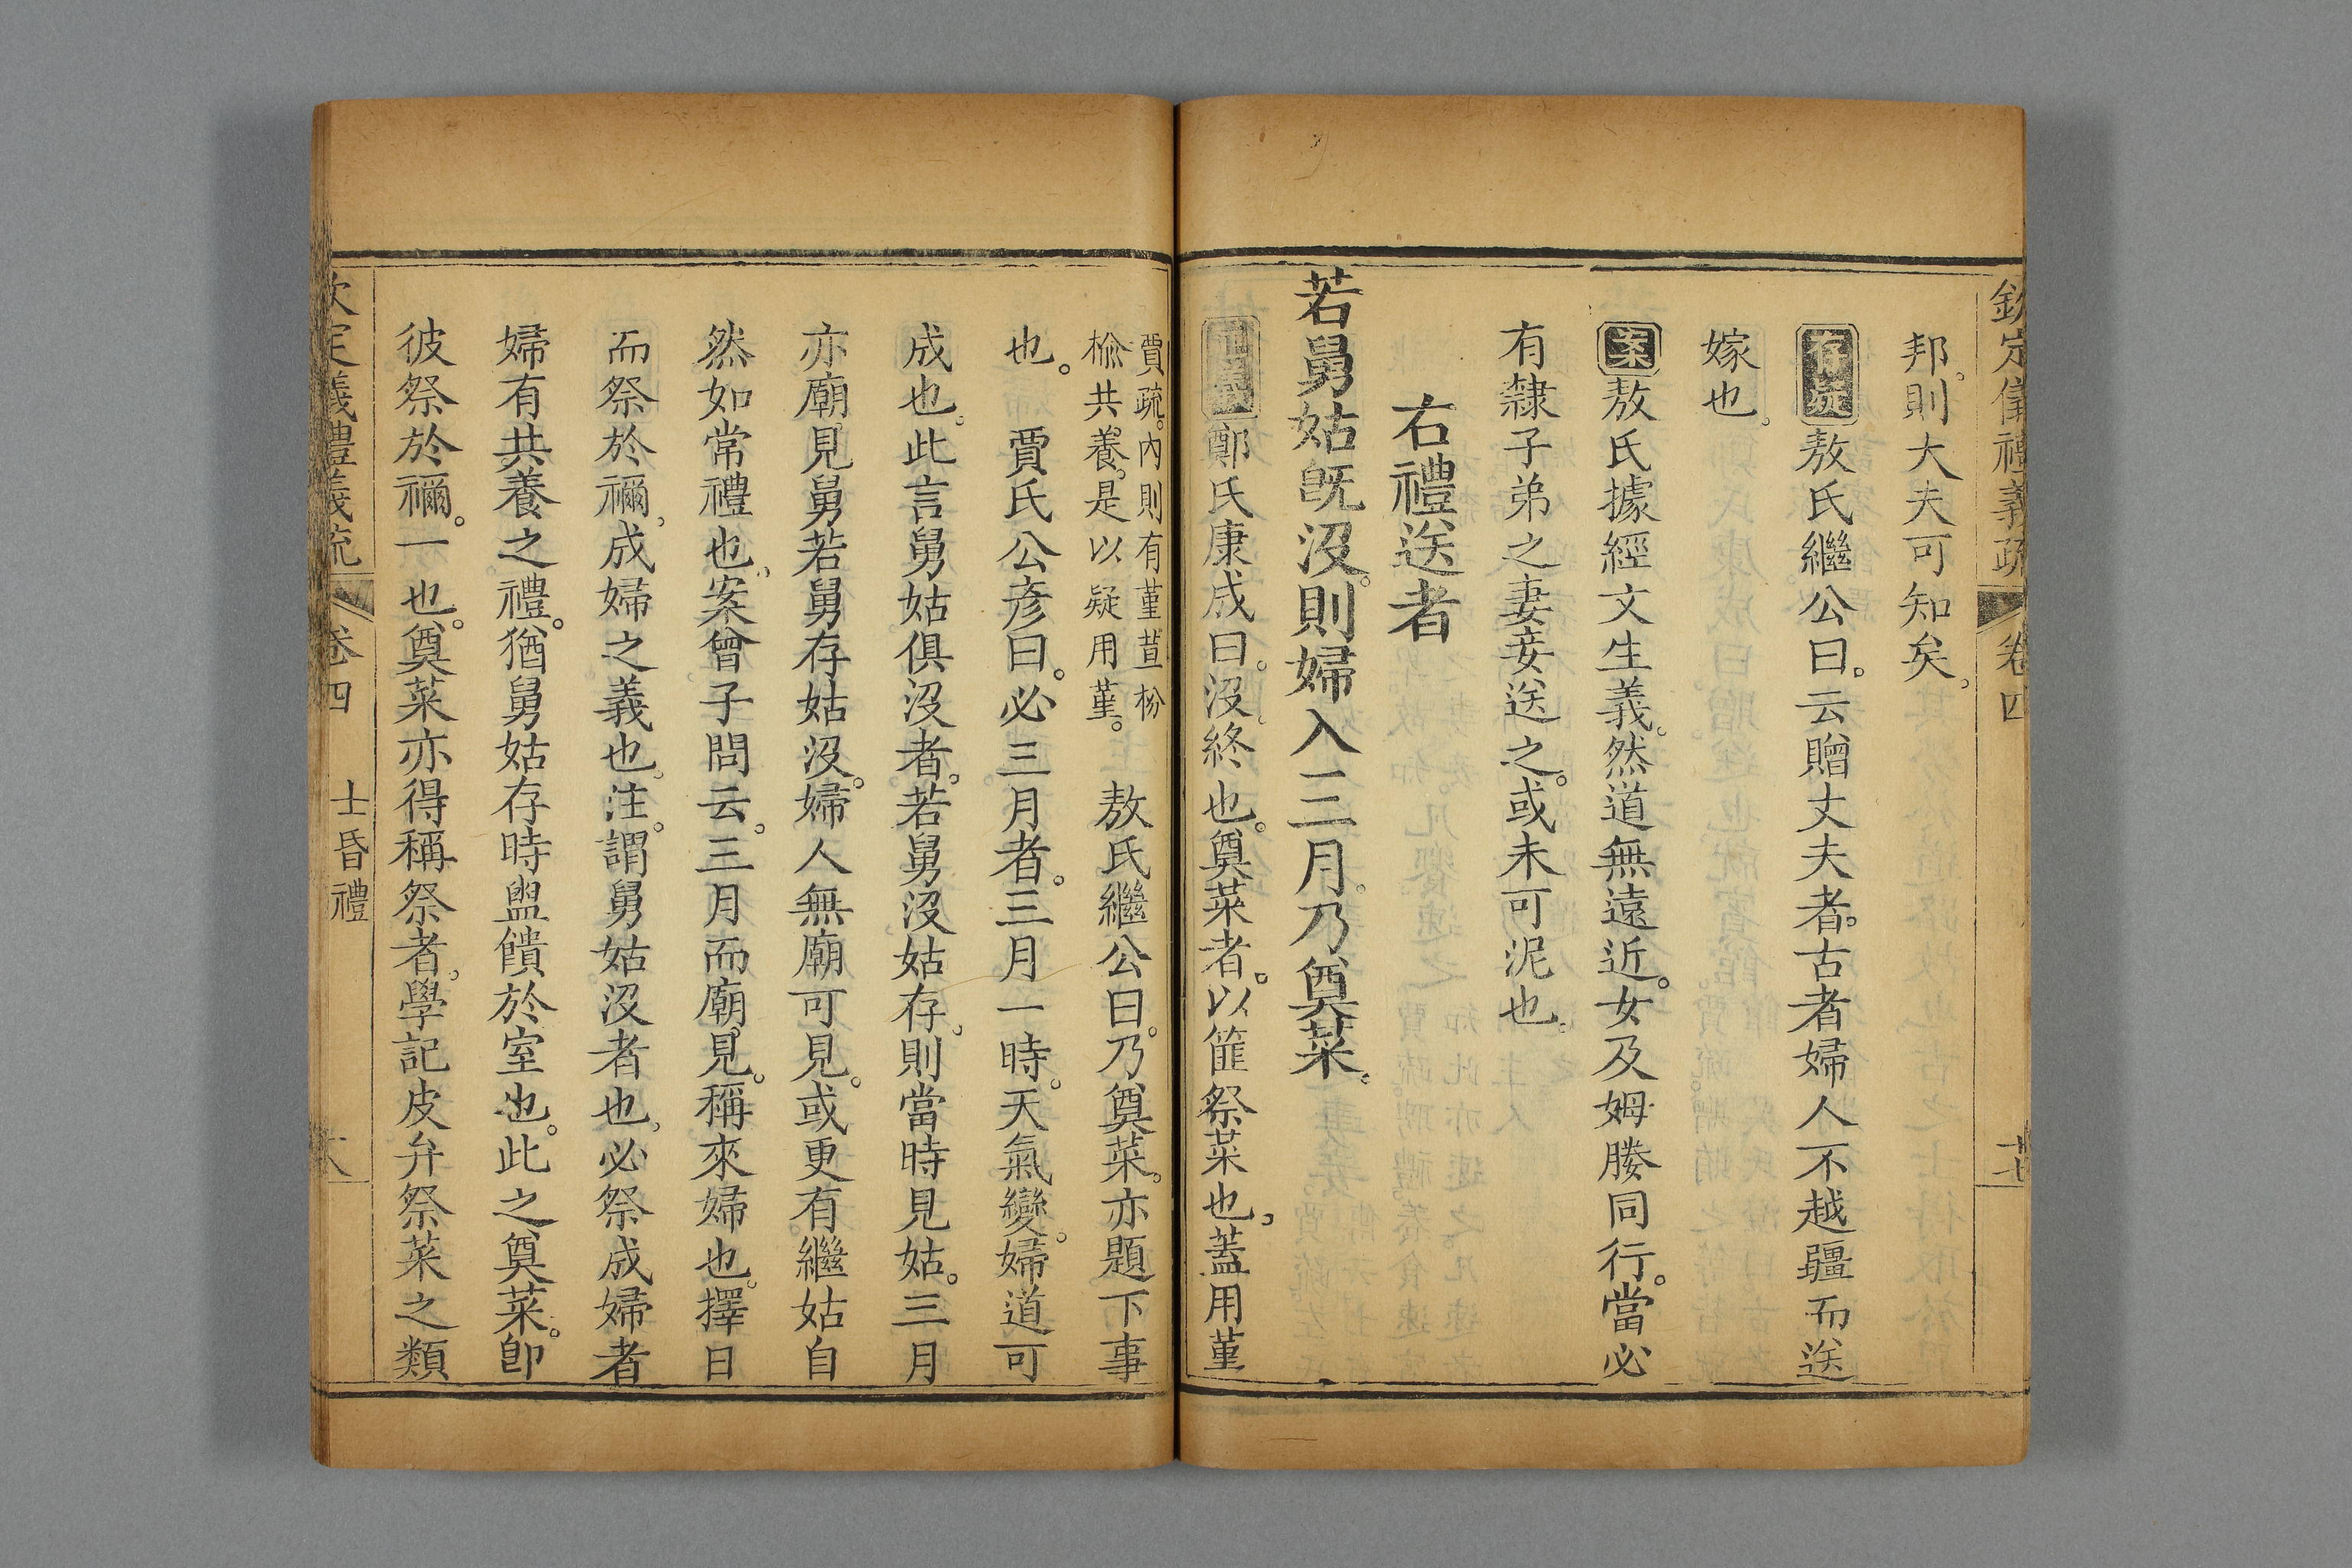 欽定儀禮義疏 卷四
邦則大夫可知矣
存疑敖氏繼公曰云贈丈夫者古者婦人不越疆而送
嫁也
案敖氏據經文生義然道無遠近女及姆媵同行當必
有隸子弟之妻妾送之或未可泥也
右禮送者
若舅姑旣沒則婦入三月乃奠菜
正義鄭氏康成曰沒終也奠菜者以篚祭菜也蓋用菫
賈疏內則有菫荁枌
楡共養是以疑用菫
敖氏繼公曰乃奠菜亦題下事
也 賈氏公彦曰必三月者三月一時天氣變婦道可
成也此言舅姑俱沒者若舅沒姑存則當時見姑三月
亦廟見舅若舅存姑沒婦人無廟可見或更有繼姑自
然如常禮也案曾子問云三月而廟見稱來婦也擇日
而祭於禰成婦之義也注謂舅姑沒者也必祭成婦者
婦有共養之禮猶舅姑存時盥饋於室也此之奠菜卽
彼祭於禰一也奠菜亦得稱祭者學記皮弁祭菜之類
欽定儀禮義疏 卷四 士昏禮